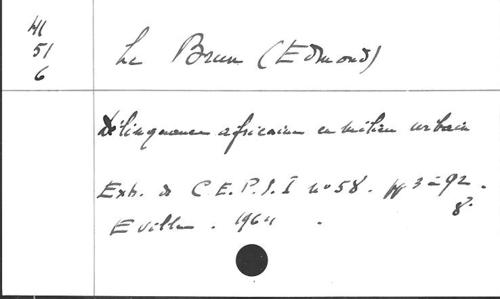 41
51
6
Le Brun (Edmond)
Délinquance africaine en milieu urbain
Extr. de C.E.P.S.I n° 58. pp 3 à 92.
8°
Eville. 1964.